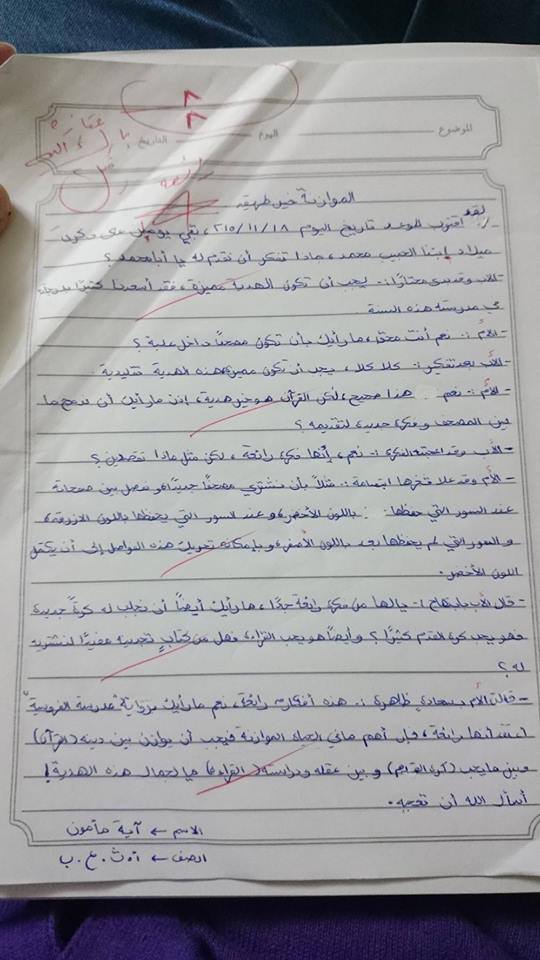 ٨
٨
رائعة
الموضوع اليوم التاريخ
الموازنة خير طريقة
لقد اقترب الموعد تاريخ اليوم ٢٠١٥/١١/١٨، بقي يومان على ذكرى
ميلاد إبننا الحبيب محمد، ماذا تفكر أن نقدم له يا أبا محمد؟
-الأب وقد بدى محتارًا:- يجب أن تكون الهدية مميزة، فقد أسعدنا كثيرًا بدرجاته
في مدرسته هذه السنة.
-الأم:- نعم أنت محق، ما رأيك بأن تكون مصحفًا داخل علبة؟
-الأب بعد تفكر:- كلا كلا، يجب أن تكون مميزة هذه الهدية تقليدية.
-الأم:- نعم هذا صحيح، لكن القرآن هو خير هدية، إذن ما رأيك أن ندمج ما
بين المصحف وفكرة جديدة لتقديمه؟
-الأب وقد أعجبته الفكرة:- نعم، إنها فكرة رائعة، لكن مثل ماذا تقصدين؟
-الأم وقد علا ثغرها ابتسامة:- مثلاً بأن نشتري مصحفًا جديدًا، و نفصل بين صفحاته
عند السور التي حفظها: باللون الأخضر، و عند السور التي يحفظها باللون الأزرق،
و السور التي لم يحفظها بعد باللون الأصفر، و بإمكانه تحويل هذه الفواصل إلى أن يكتمل
اللون الأخضر.
-قال الأب بابتهاج:- يا لها من فكرة رائعة جدًا، ما رأيك أيضًا أن نجلب له كرةً جديدة
فهو يحب كرة القدم كثيرًا؟ وأيضًا هو يحب القراءة، فهل من كتابٍ تجدينه مفيدًا لنشتريه
له؟
-قالت الأم بسعادةٍ ظاهرة:- هذه أفكار رائعة، نعم ما رأيك برواية "مدرسة الفروسية"
أعتقد أنها رائعة، فإن أهم ما في الحياة الموازنة فيجب أن يوازن بين دينه (القرآن)
وبين ما يحب (كرة القدم) و بين عقله ودراسته (القراءة) يا لجمال هذه الهدية!
أسأل الله أن تعجبه.
الاسم ← آية مأمون
الصف ←